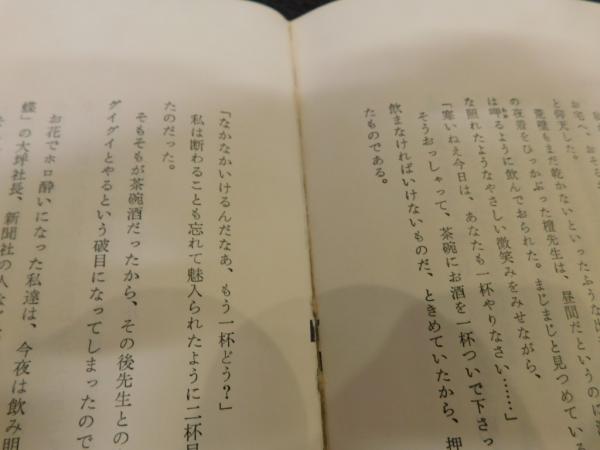 お宅へ、おそるお
と仰天した。
荒壁もまだ乾かないといったふうな出
の夜着をひっかぶった檀先生は、昼間だというのに酒
は呷るように飲んでおられた。まじまじと見つめている
な照れたようなやさしい微笑みをみせながら、
「寒いねえ今日は、あなたも一杯やりなさい……」
そうおっしゃって、茶碗にお酒を一杯ついで下さっ
飲まなければいけないものだ、ときめていたから、押
たものである。
「なかなかいけるんだなあ、もう一杯どう？」
私は断わることも忘れて魅入られたように二杯目
たのだった。
そもそもが茶碗酒だったから、その後先生との
グイグイとやるという破目になってしまったので
お花でホロ酔いになった私達は、今夜は飲み明
蝶」の大坪社長、新聞社の人な